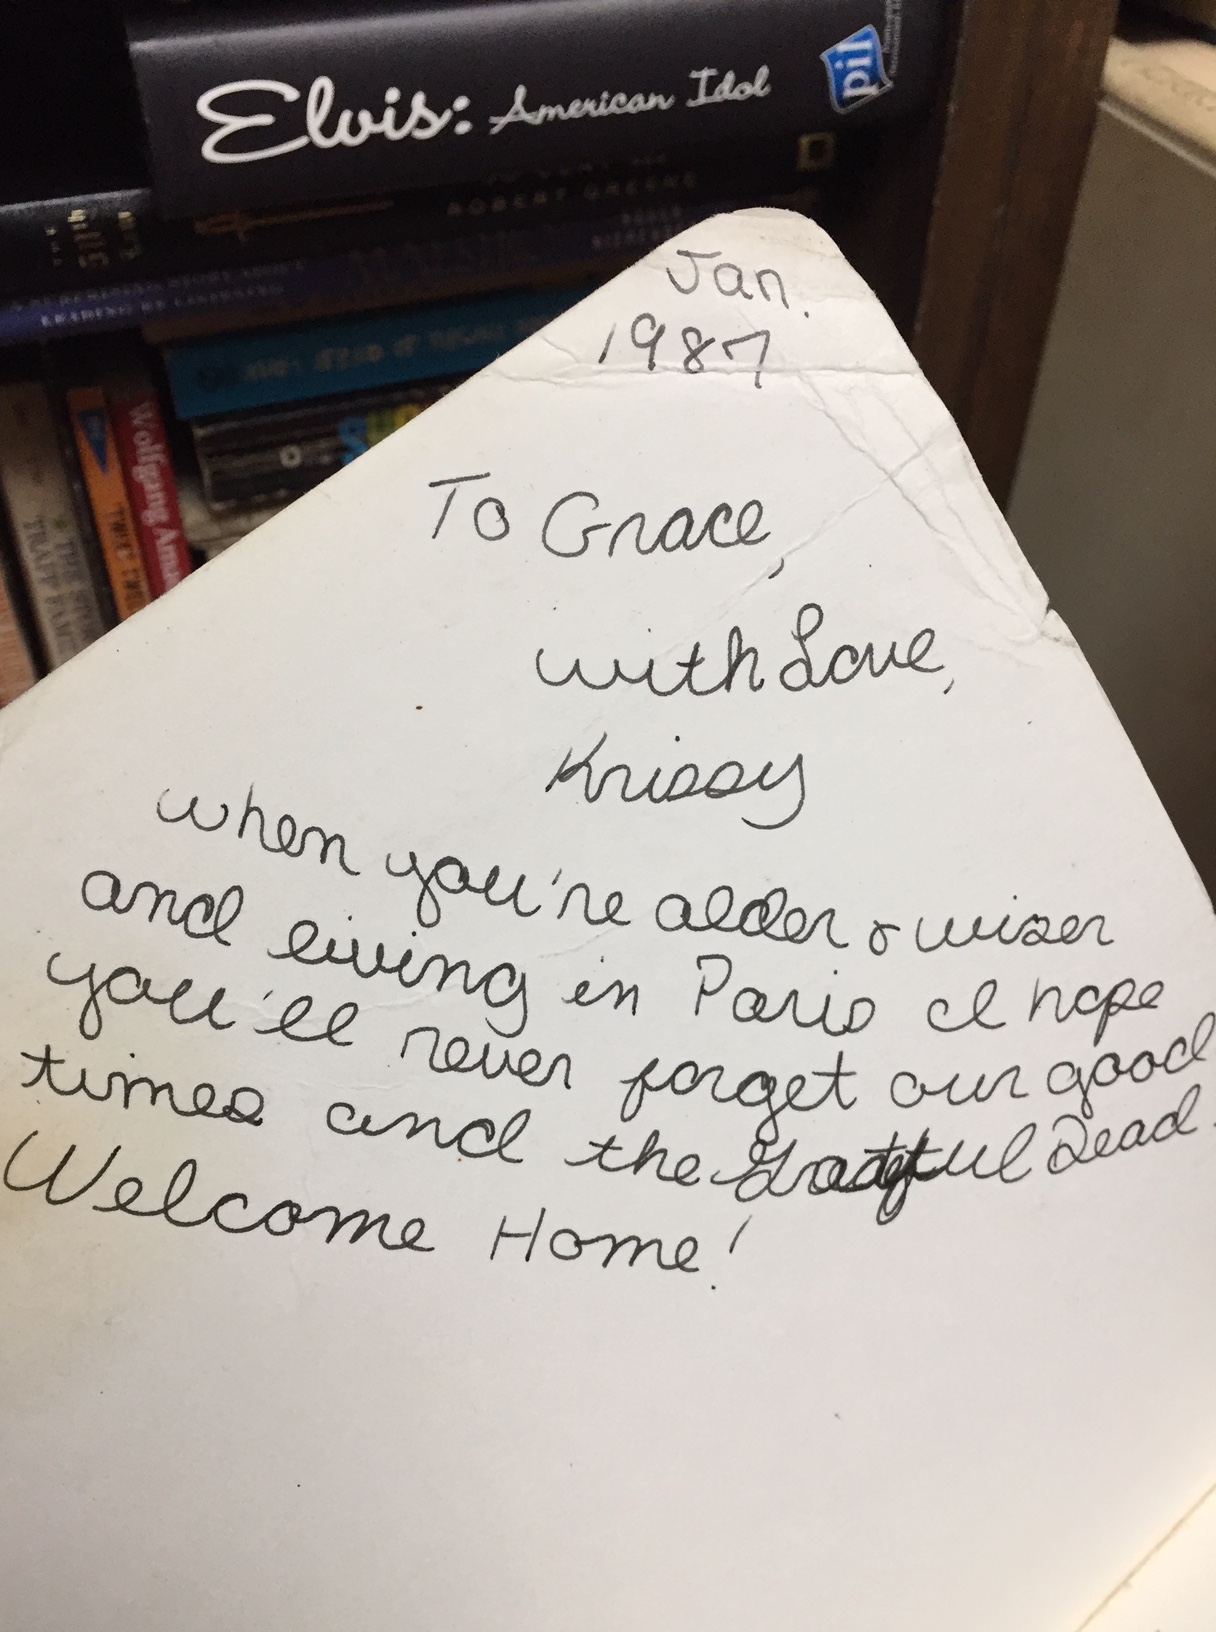 Elvis: American Idol
pil
ROBERT GREENE
Wolfgang Ama
Jan.
1987
To Grace,
with Love,
Krissy
when you're older & wiser
and living in Paris I hope
you'll never forget our good
times and the Grateful Dead.
Welcome Home!